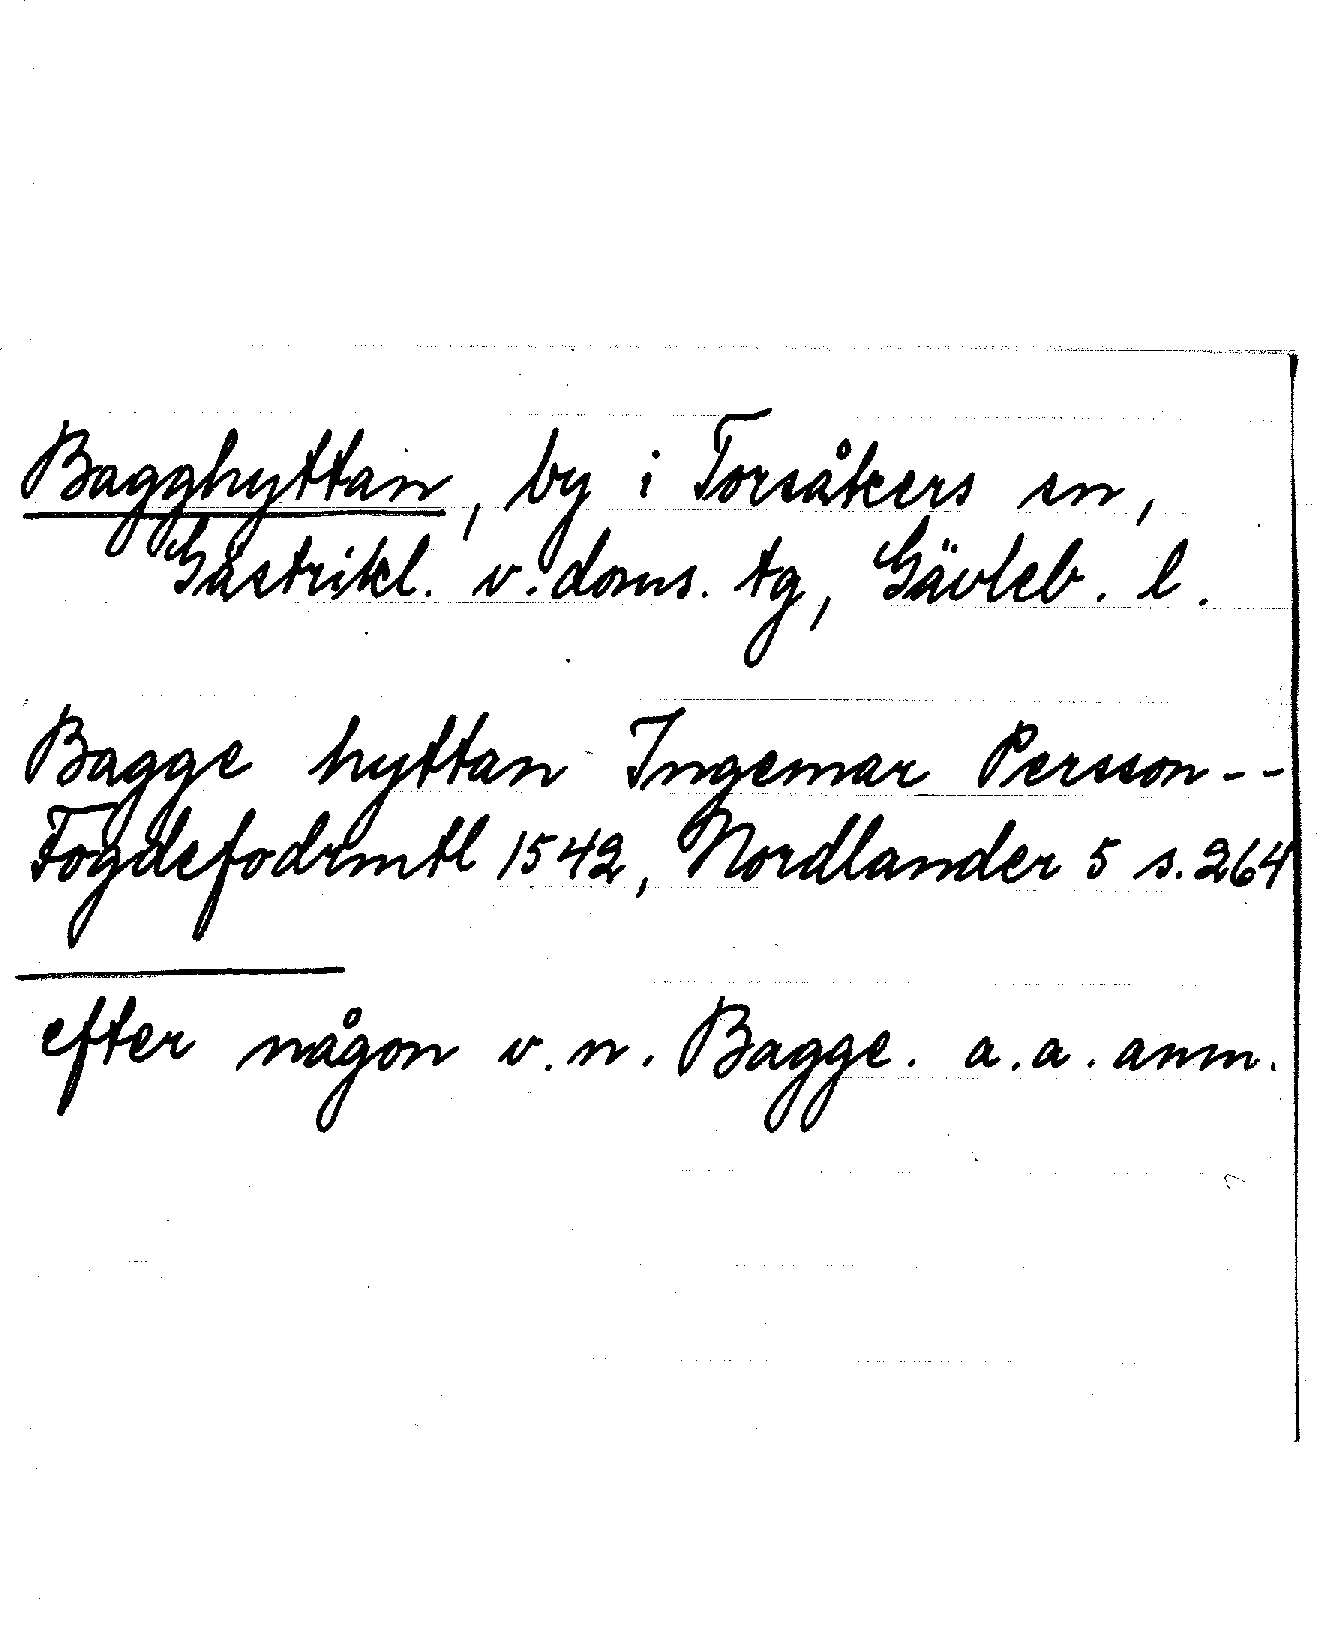 Bagghyttan, by i Torsåkers sn,
Gästrikl. v. doms. tg, Gävleb. l.
Bagge hyttan Ingemar Persson--
Fogdefodrmtl 1542, Nordlander 5 s. 264
efter någon v. n. Bagge. a. a. anm.